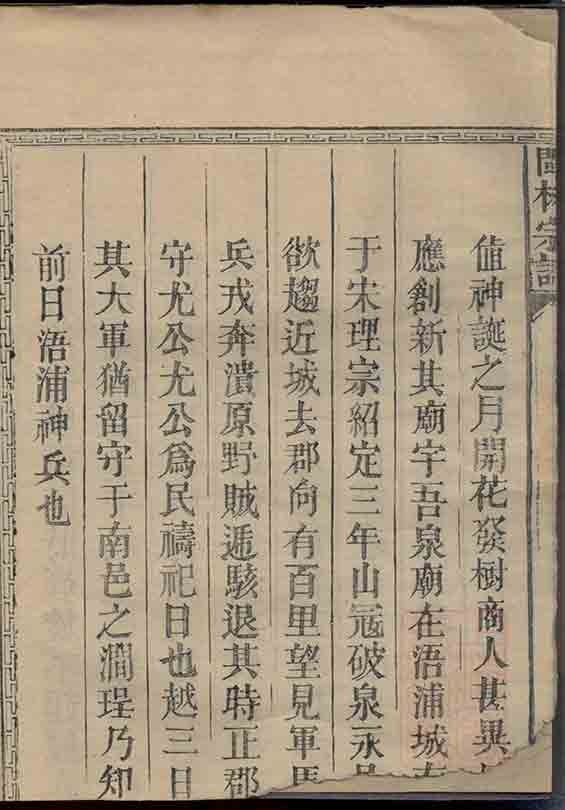 閩林宗譜
值神誕之月開花發樹商人甚異
應創新其廟宇吾泉廟在浯浦城
于宋理宗紹定三年山冦破泉永
欲趨近城去郡向有百里望見軍馬
兵戎奔潰原野賊遁駭退其時正郡
守尤公尤公爲民禱祀日也越三日
其大軍猶留守于南邑之澗埕乃知
前日浯浦神兵也